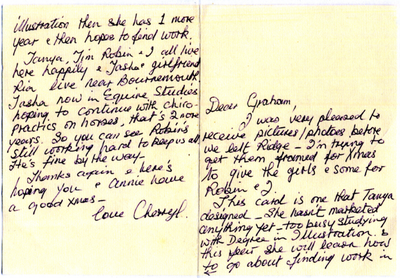 Dear Graham,
I was very pleased to
receive pictures/photoes before
we left Ridge - I'm trying to
get them framed for Xmas
to give the girls & some for
Robin & I.
This card is one that Tanya
designed - She hasn't marketed
anything yet - too busy studying
with Degree in Illustration.
this year she will learn how
to go about finding work in
illustration then she has 1 more
year & then hopes to find work.
Tanya, Tim Robin & I all live
here happily & Tasha & girlfriend
Ria live near Bournemouth
Tasha now in Equine Studies
hoping to continue with chiro-
practics on horses, that's 2 more
years. So you can see Robin's
still working hard to keep us all
He's fine by the way -
Thanks again & here's
hoping you & Annie have
a good xmas -
love Cherryl.